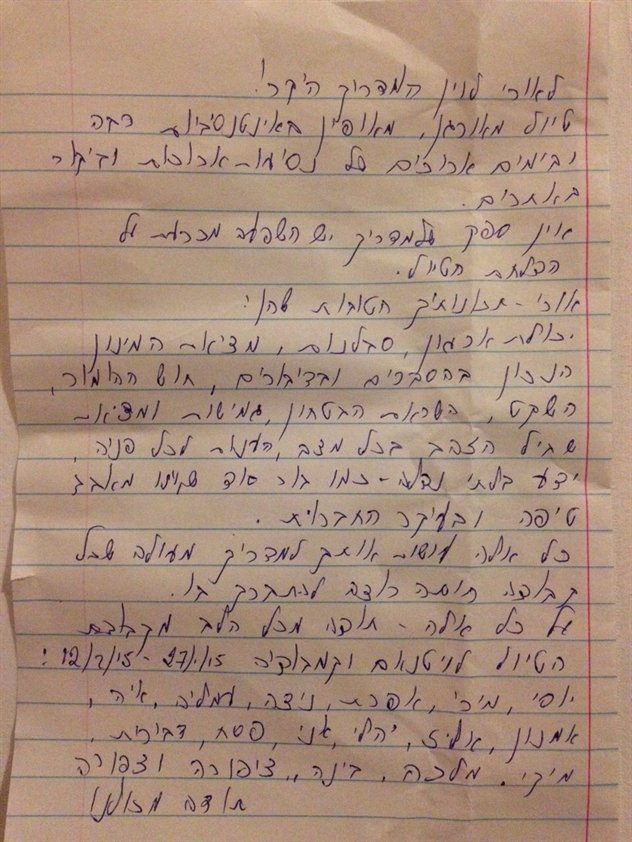 לאורי לוין המדריך היקר!
טיול מאורגן, מאופיין באינטנסיביות רבה
ובימים ארוכים של נסיעות ארוכות וביקור
באתרים.
אין ספק שלמדריך יש השפעה מכרעת על
הצלחת הטיול.
אורי - תכונותיך הטובות שהן:
יכולת ארגון, סבלנות, מציאת המינון
הנכון בהסברים ובדיבורים, חוש ההומור,
השקט, השראת הבטחון, גמישות ומציאת
שביל הזהב בכל מצב, הענות לכל פניה,
ידע בלתי נדלה - כמו בור סוד שאינו מאבד
טיפה ובעיקר החברות.
כל אלה עושות אותך למדריך מעולה שכל
קבוצה תוסה רוצה להתברך בו.
על כל אלה - תודה מכל הלב מקבוצת
הטיול לויטנאם וקמבודיה 27/1/15 - 12/2/15:
יוסי, מירי, אפרת, ניצה, עמליה, איה,
אמנון, אליז, יהלי, אני, פסח, דבירית,
מיקי, מלכה, בינה, ציפורה וצפורה
תודה מכולנו